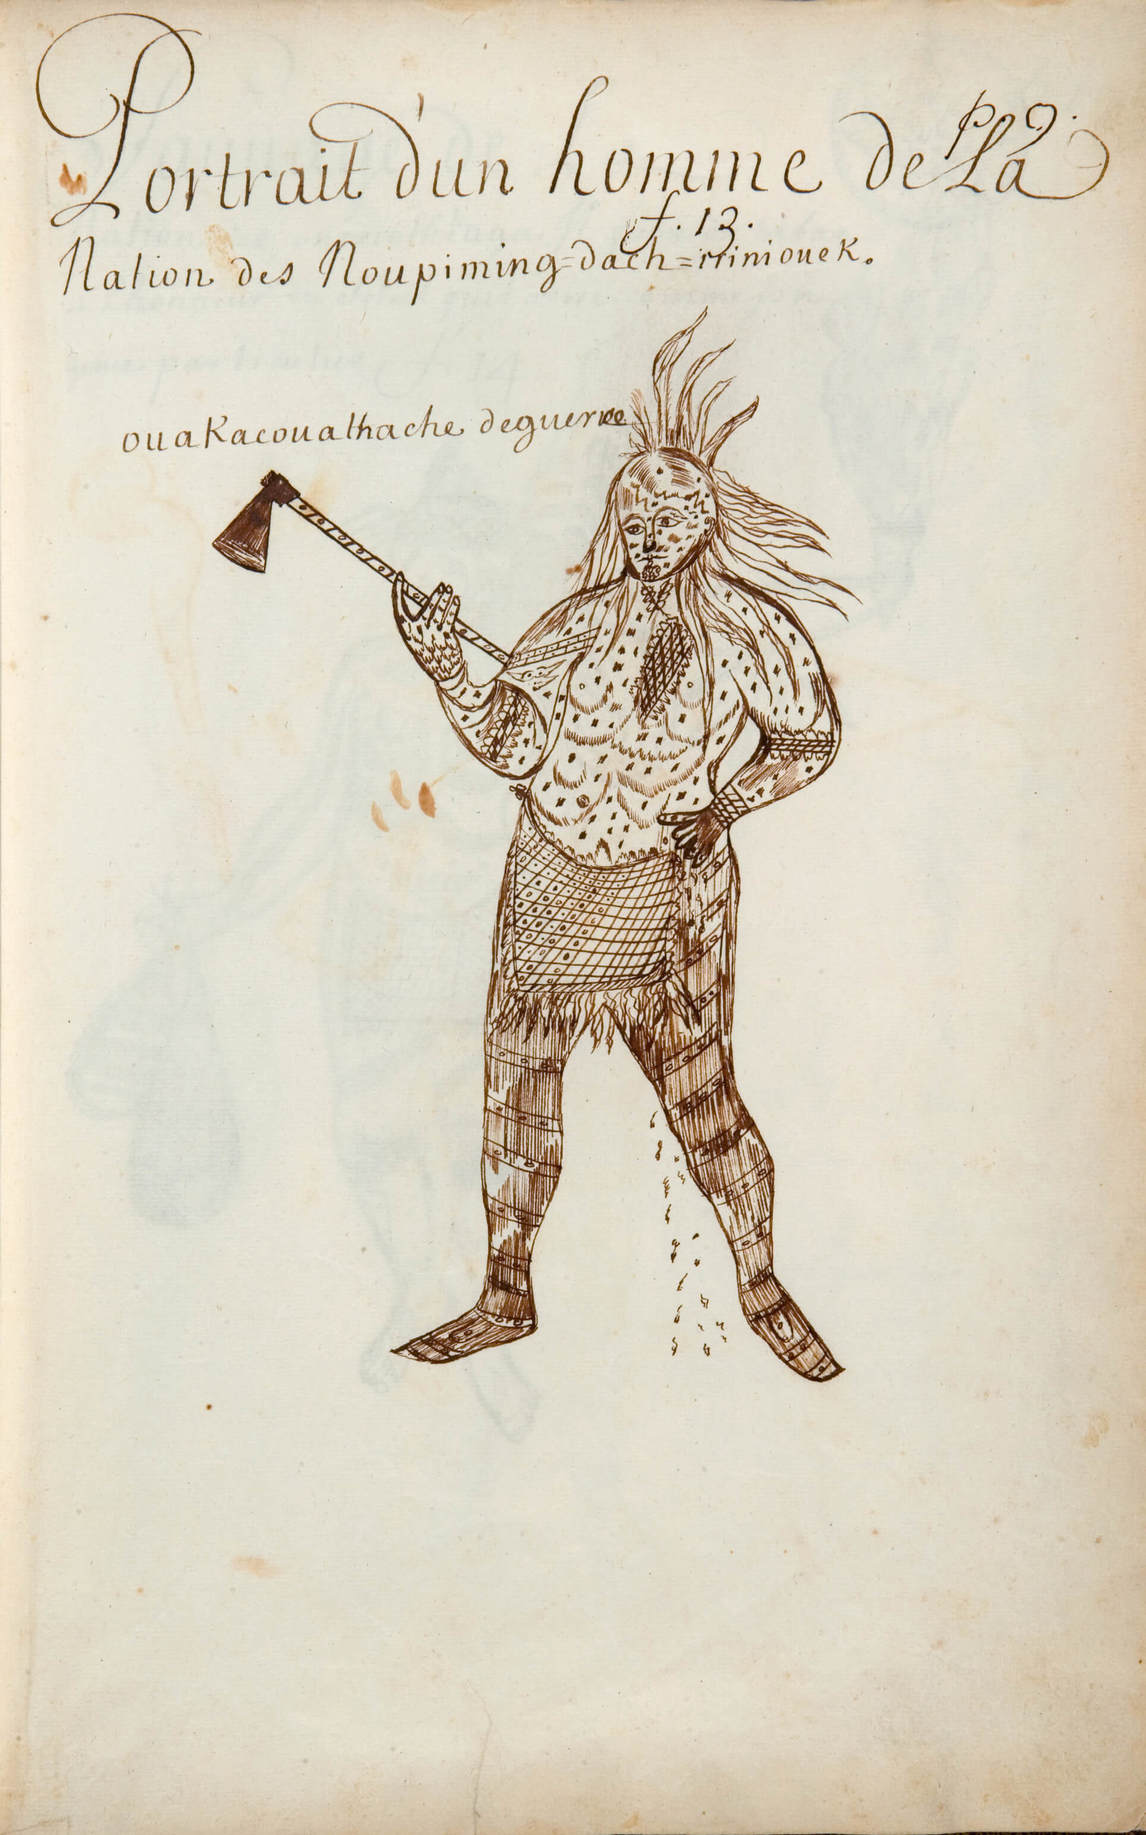 Portrait d'un homme de La
pl 9.
f. 13.
Nation des Noupiming=dach=iriniouek.
ouaKacoualhache deguerre